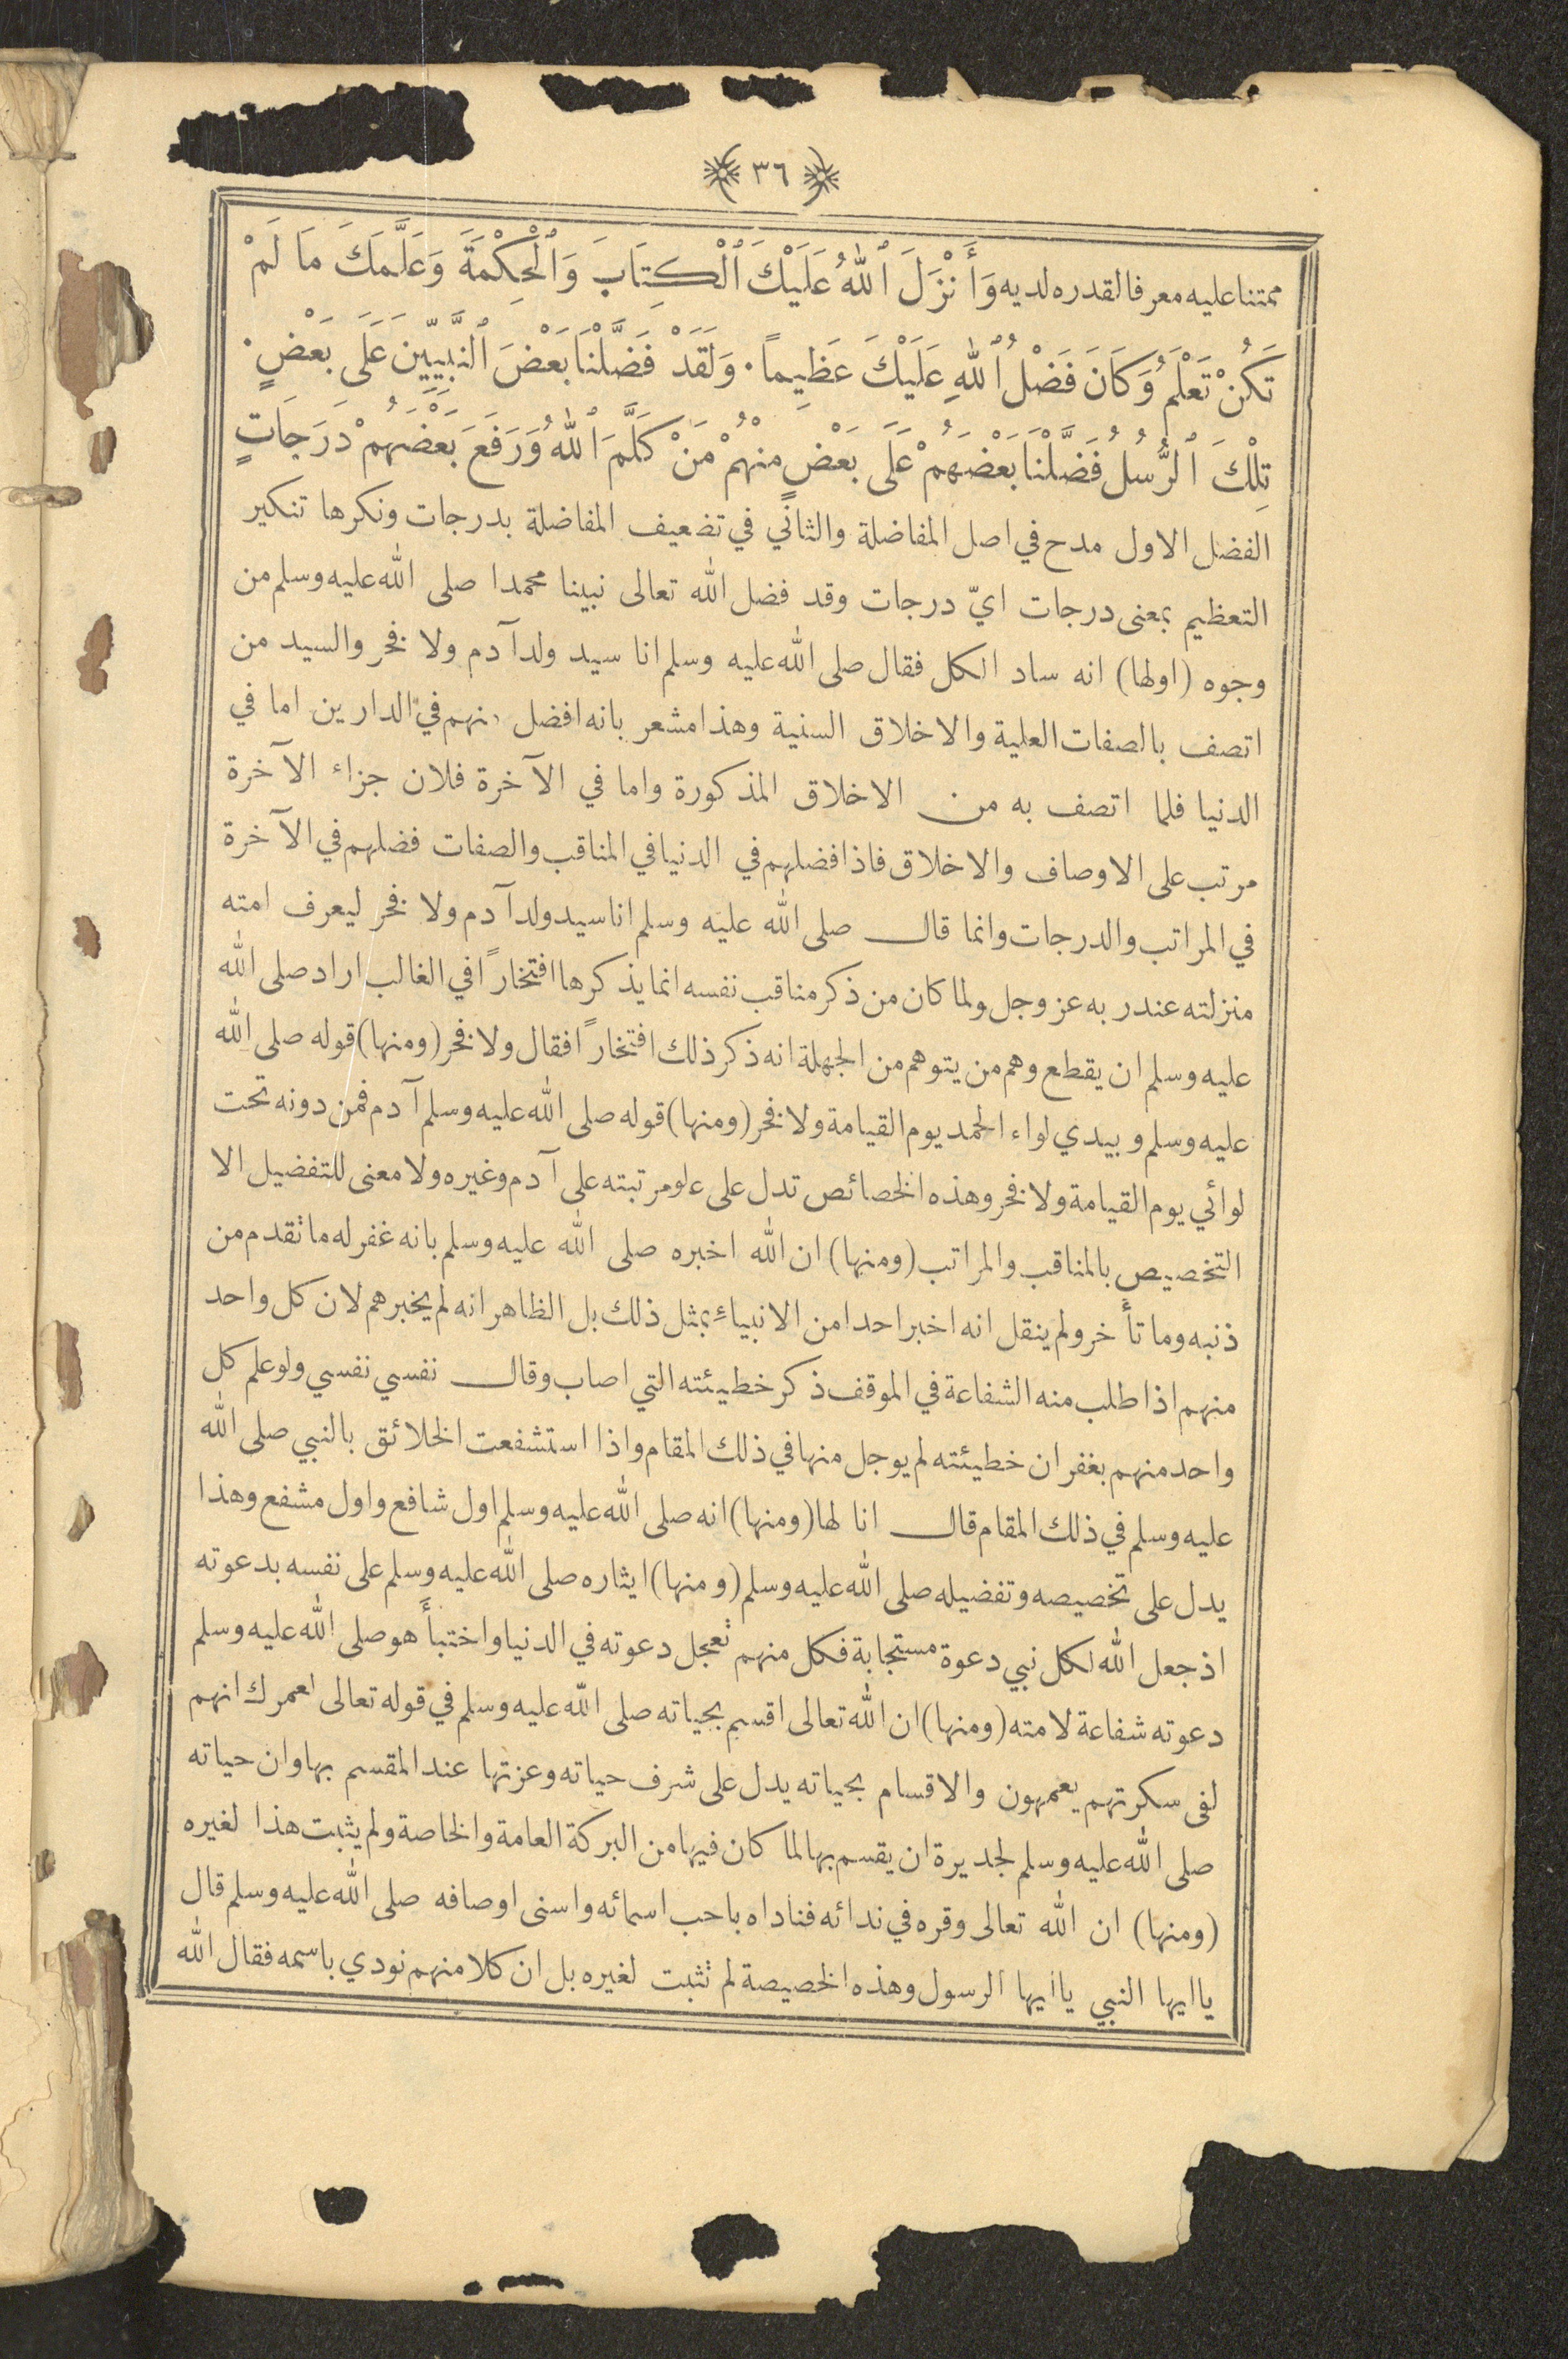 ٣٦
ممتنا عليه معرفا لقدره لديه وَأَنْزَلَ ٱللهُ عَلَيْكَ ٱلْكِتَابَ وَٱلْحِكْمَةَ وَعَلَّمَكَ مَا لَمْ
تَكُنْ تَعْلَمُ وَكَانَ فَضْلُ ٱللهِ عَلَيْكَ عَظِيماً ۰ وَلَقَدْ فَضَّلْنَا بَعْضَ ٱلنَّبِيِّينَ عَلَى بَعْضٍ ۰
تِلْكَ ٱلرُّسُلُ فَضَّلْنَا بَعْضَهُمْ عَلَى بَعْضٍ مِنْهُمْ مَنْ كَلَّمَ ٱللهُ وَرَفَعَ بَعْضَهُمْ دَرَجَاتٍ
الفضل الاول مدح في اصل المفاضلة والثاني في تضعيف المفاضلة بدرجات ونكرها تنكير
التعظيم بمعنى درجات ايّ درجات وقد فضل الله تعالى نبينا محمدا صلى الله عليه وسلم من
وجوه (اولها) انه ساد الكل فقال صلى الله عليه وسلم انا سيد ولد آدم ولا فخر والسيد من
اتصف بالصفات العلية والاخلاق السنية وهذا مشعر بانه افضل منهم في الدارين اما في
الدنيا فلما اتصف به من الاخلاق المذكورة واما في الآخرة فلان جزاء الآخرة
مرتب على الاوصاف والاخلاق فاذا فضلهم في الدنيا في المناقب والصفات فضلهم في الآخرة
في المراتب والدرجات وانما قال صلى الله عليه وسلم انا سيد ولد آدم ولا فخر ليعرف امته
منزلته عند ربه عز وجل ولما كان من ذكر مناقب نفسه انما يذكرها افتخاراً في الغالب اراد صلى الله
عليه وسلم ان يقطع وهم من يتوهم من الجهلة انه ذكر ذلك افتخاراً فقال ولا فخر (ومنها) قوله صلى الله
عليه وسلم وبيدي لواء الحمد يوم القيامة ولا فخر (ومنها) قوله صلى الله عليه وسلم آدم فمن دونه تحت
لوائي يوم القيامة ولا فخر وهذه الخصائص تدل على علو مرتبته على آدم وغيره ولا معنى للتفضيل الا
التخصيص بالمناقب والمراتب (ومنها) ان الله اخبره صلى الله عليه وسلم بانه غفر له ما تقدم من
ذنبه وما تأخر ولم ينقل انه اخبر احدا من الانبياء بمثل ذلك بل الظاهر انه لم يخبرهم لان كل واحد
منهم اذا طلب منه الشفاعة في الموقف ذكر خطيئته التي اصاب وقال نفسي نفسي ولو علم كل
واحد منهم بغفران خطيئته لم يوجل منها في ذلك المقام واذا استشفعت الخلائق بالنبي صلى الله
عليه وسلم في ذلك المقام قال انا لها (ومنها) انه صلى الله عليه وسلم اول شافع واول مشفع وهذا
يدل على تخصيصه وتفضيله صلى الله عليه وسلم (ومنها) ايثاره صلى الله عليه وسلم على نفسه بدعوته
اذ جعل الله لكل نبي دعوة مستجابة فكل منهم تعجل دعوته في الدنيا واختبأ هو صلى الله عليه وسلم
دعوته شفاعة لامته (ومنها) ان الله تعالى اقسم بحياته صلى الله عليه وسلم في قوله تعالى لعمرك انهم
لفى سكرتهم يعمهون والاقسام بحياته يدل على شرف حياته وعزتها عند المقسم بها وان حياته
صلى الله عليه وسلم لجديرة ان يقسم بها لما كان فيها من البركة العامة والخاصة ولم يثبت هذا لغيره
(ومنها) ان الله تعالى وقره في ندائه فناداه باحب اسمائه واسنى اوصافه صلى الله عليه وسلم قال
يا ايها النبي يا ايها الرسول وهذه الخصيصة لم تثبت لغيره بل ان كلا منهم نودي باسمه فقال الله